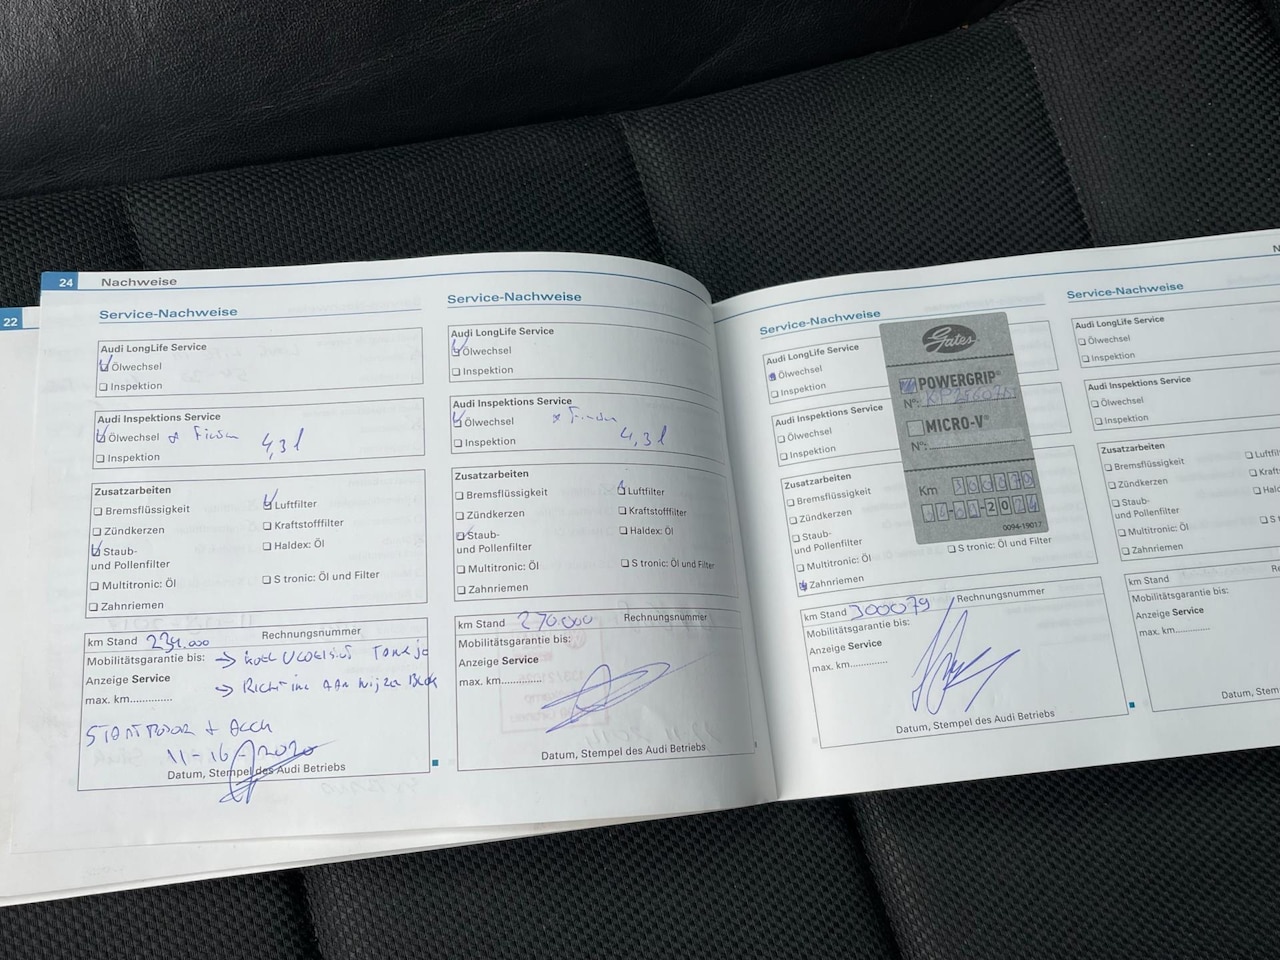 22
24 Nachweise
Service-Nachweise
Audi LongLife Service
Ölwechsel
Inspektion
Audi Inspektions Service
Ölwechsel
4,3 l
Inspektion
Zusatzarbeiten
Bremsflüssigkeit
Luftfilter
Zündkerzen
Kraftstofffilter
Staub-
und Pollenfilter
Haldex: Öl
Multitronic: Öl
S tronic: Öl und Filter
Zahnriemen
km Stand
Rechnungsnummer
Mobilitätsgarantie bis:
Anzeige Service
max. km..............
Datum, Stempel des Audi Betriebs
Service-Nachweise
Audi LongLife Service
Ölwechsel
Inspektion
Audi Inspektions Service
Ölwechsel
4,3 l
Inspektion
Zusatzarbeiten
Bremsflüssigkeit
Luftfilter
Zündkerzen
Kraftstofffilter
Staub-
und Pollenfilter
Haldex: Öl
Multitronic: Öl
S tronic: Öl und Filter
Zahnriemen
km Stand 270.000 Rechnungsnummer
Mobilitätsgarantie bis:
Anzeige Service
max. km.............
Datum, Stempel des Audi Betriebs
Service-Nachweise
Audi LongLife Service
Ölwechsel
Inspektion
Audi Inspektions Service
Ölwechsel
Inspektion
Zusatzarbeiten
Bremsflüssigkeit
Zündkerzen
Staub-
und Pollenfilter
Multitronic: Öl
S tronic: Öl und Filter
Zahnriemen
km Stand 300079 Rechnungsnummer
Mobilitätsgarantie bis:
Anzeige Service
max. km.............
Datum, Stempel des Audi Betriebs
Gates
POWERGRIP®
N°:
MICRO-V®
N°:
Km
0094-19017
Service-Nachweise
Audi LongLife Service
Ölwechsel
Inspektion
Audi Inspektions Service
Ölwechsel
Inspektion
Zusatzarbeiten
Bremsflüssigkeit
Zündkerzen
Staub-
und Pollenfilter
Multitronic: Öl
Zahnriemen
km Stand
Mobilitätsgarantie bis:
Anzeige Service
max. km.............